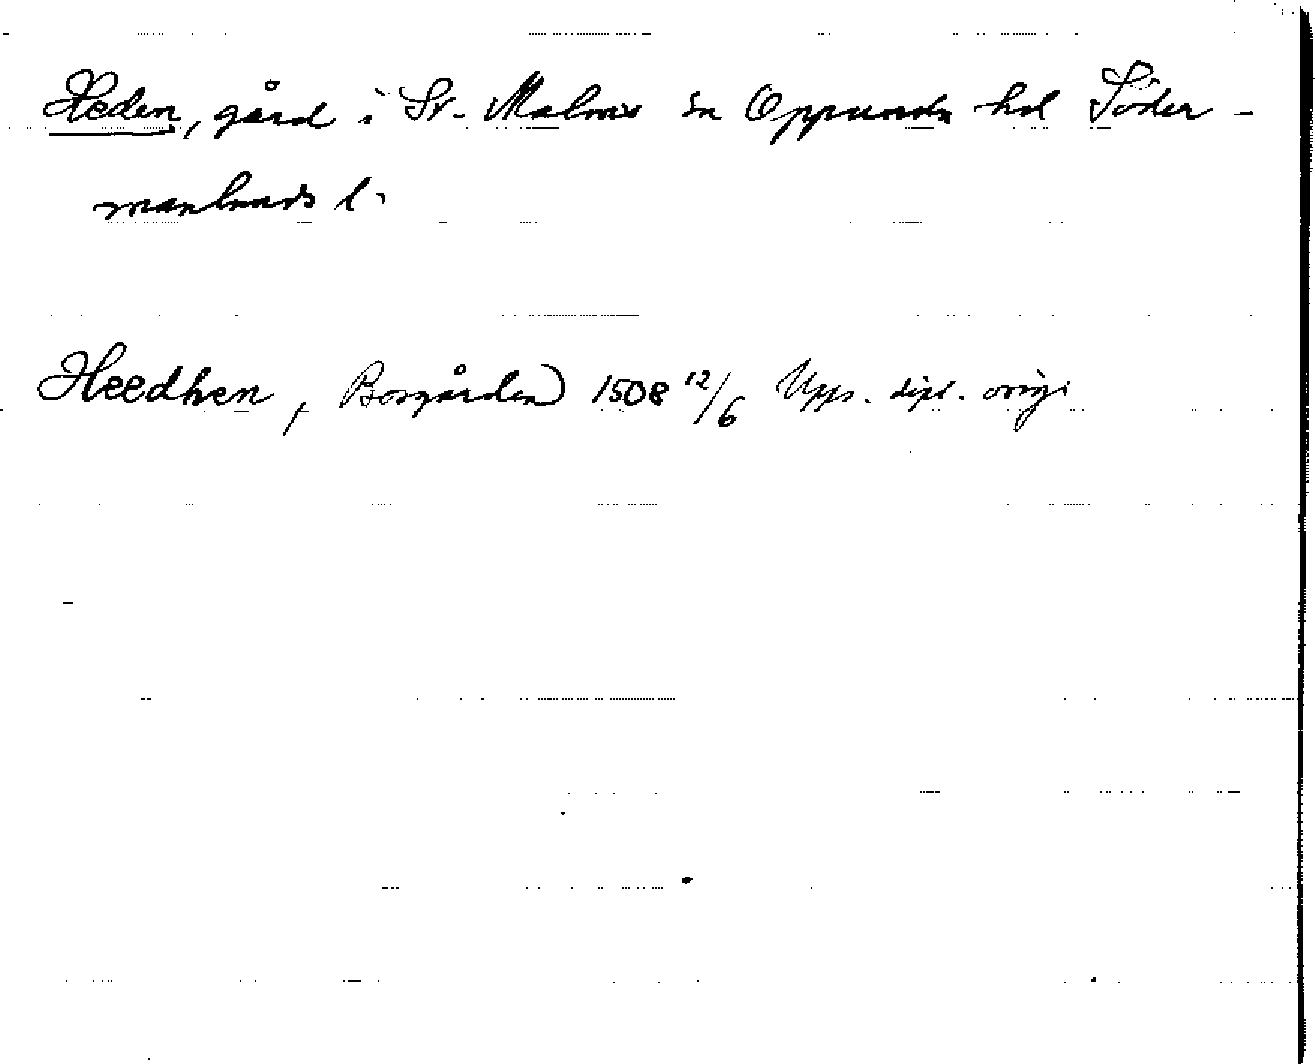 Heden, gård i St. Malms sn Oppunda hd Söder-
manlands l.
Heedhen, Borgården) 1508 12/6 Upps. dipl. orig.